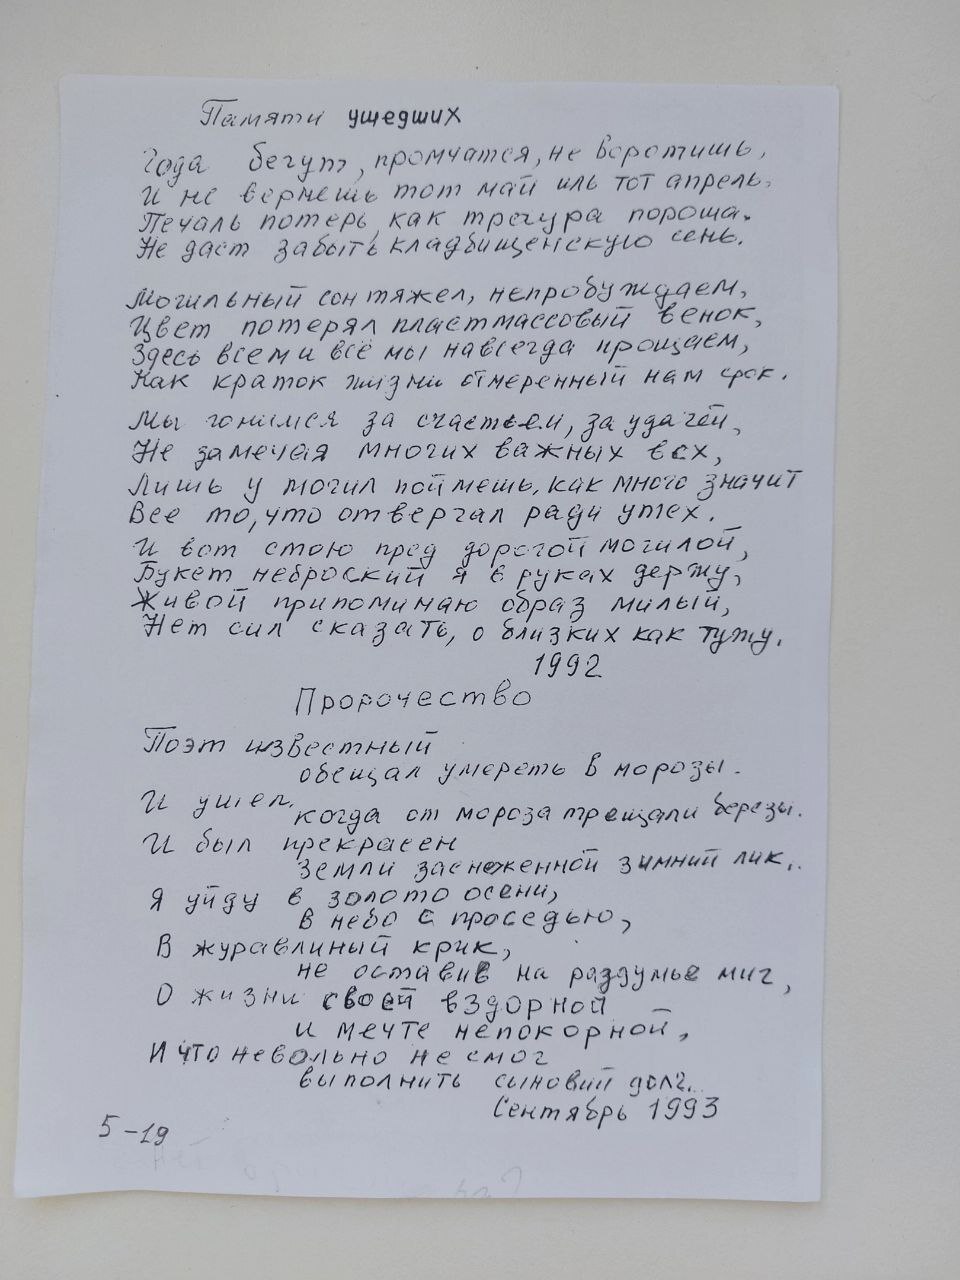 Памяти ушедших
Года бегут, промчатся, не воротишь,
И не вернешь тот май иль тот апрель.
Печаль потерь, как пороша.
Не даст забыть кладбищенскую сень.
Могильный сон тяжел, непробуждаем,
Цвет потерял пластмассовый венок,
Здесь всем и всё мы навсегда прощаем,
Как краток жизни отмеренный нам срок.
Мы гонимся за счастьем, за удачей,
Не замечая многих важных вех,
Лишь у могил поймешь, как много значит
Все то, что отвергал ради утех.
И вот стою пред дорогой могилой,
Букет неброский я в руках держу,
Живой припоминаю образ милый,
Нет сил сказать, о близких как тужу.
1992
Пророчество
Поэт известный
обещал умереть в морозы.
И ушел,
когда от мороза трещали березы.
И был прекрасен
Земли заснеженной зимний лик..
Я уйду в золото осени,
в небо с проседью,
В журавлиный крик,
не оставив на раздумье миг,
О жизни своей вздорной
и мечте непокорной,
И что невольно не смог
выполнить сыновий долг..
Сентябрь 1993
5-19